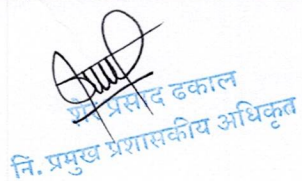 प्रसाद ढकाल
नि. प्रमुख प्रशासकीय अधिकृत